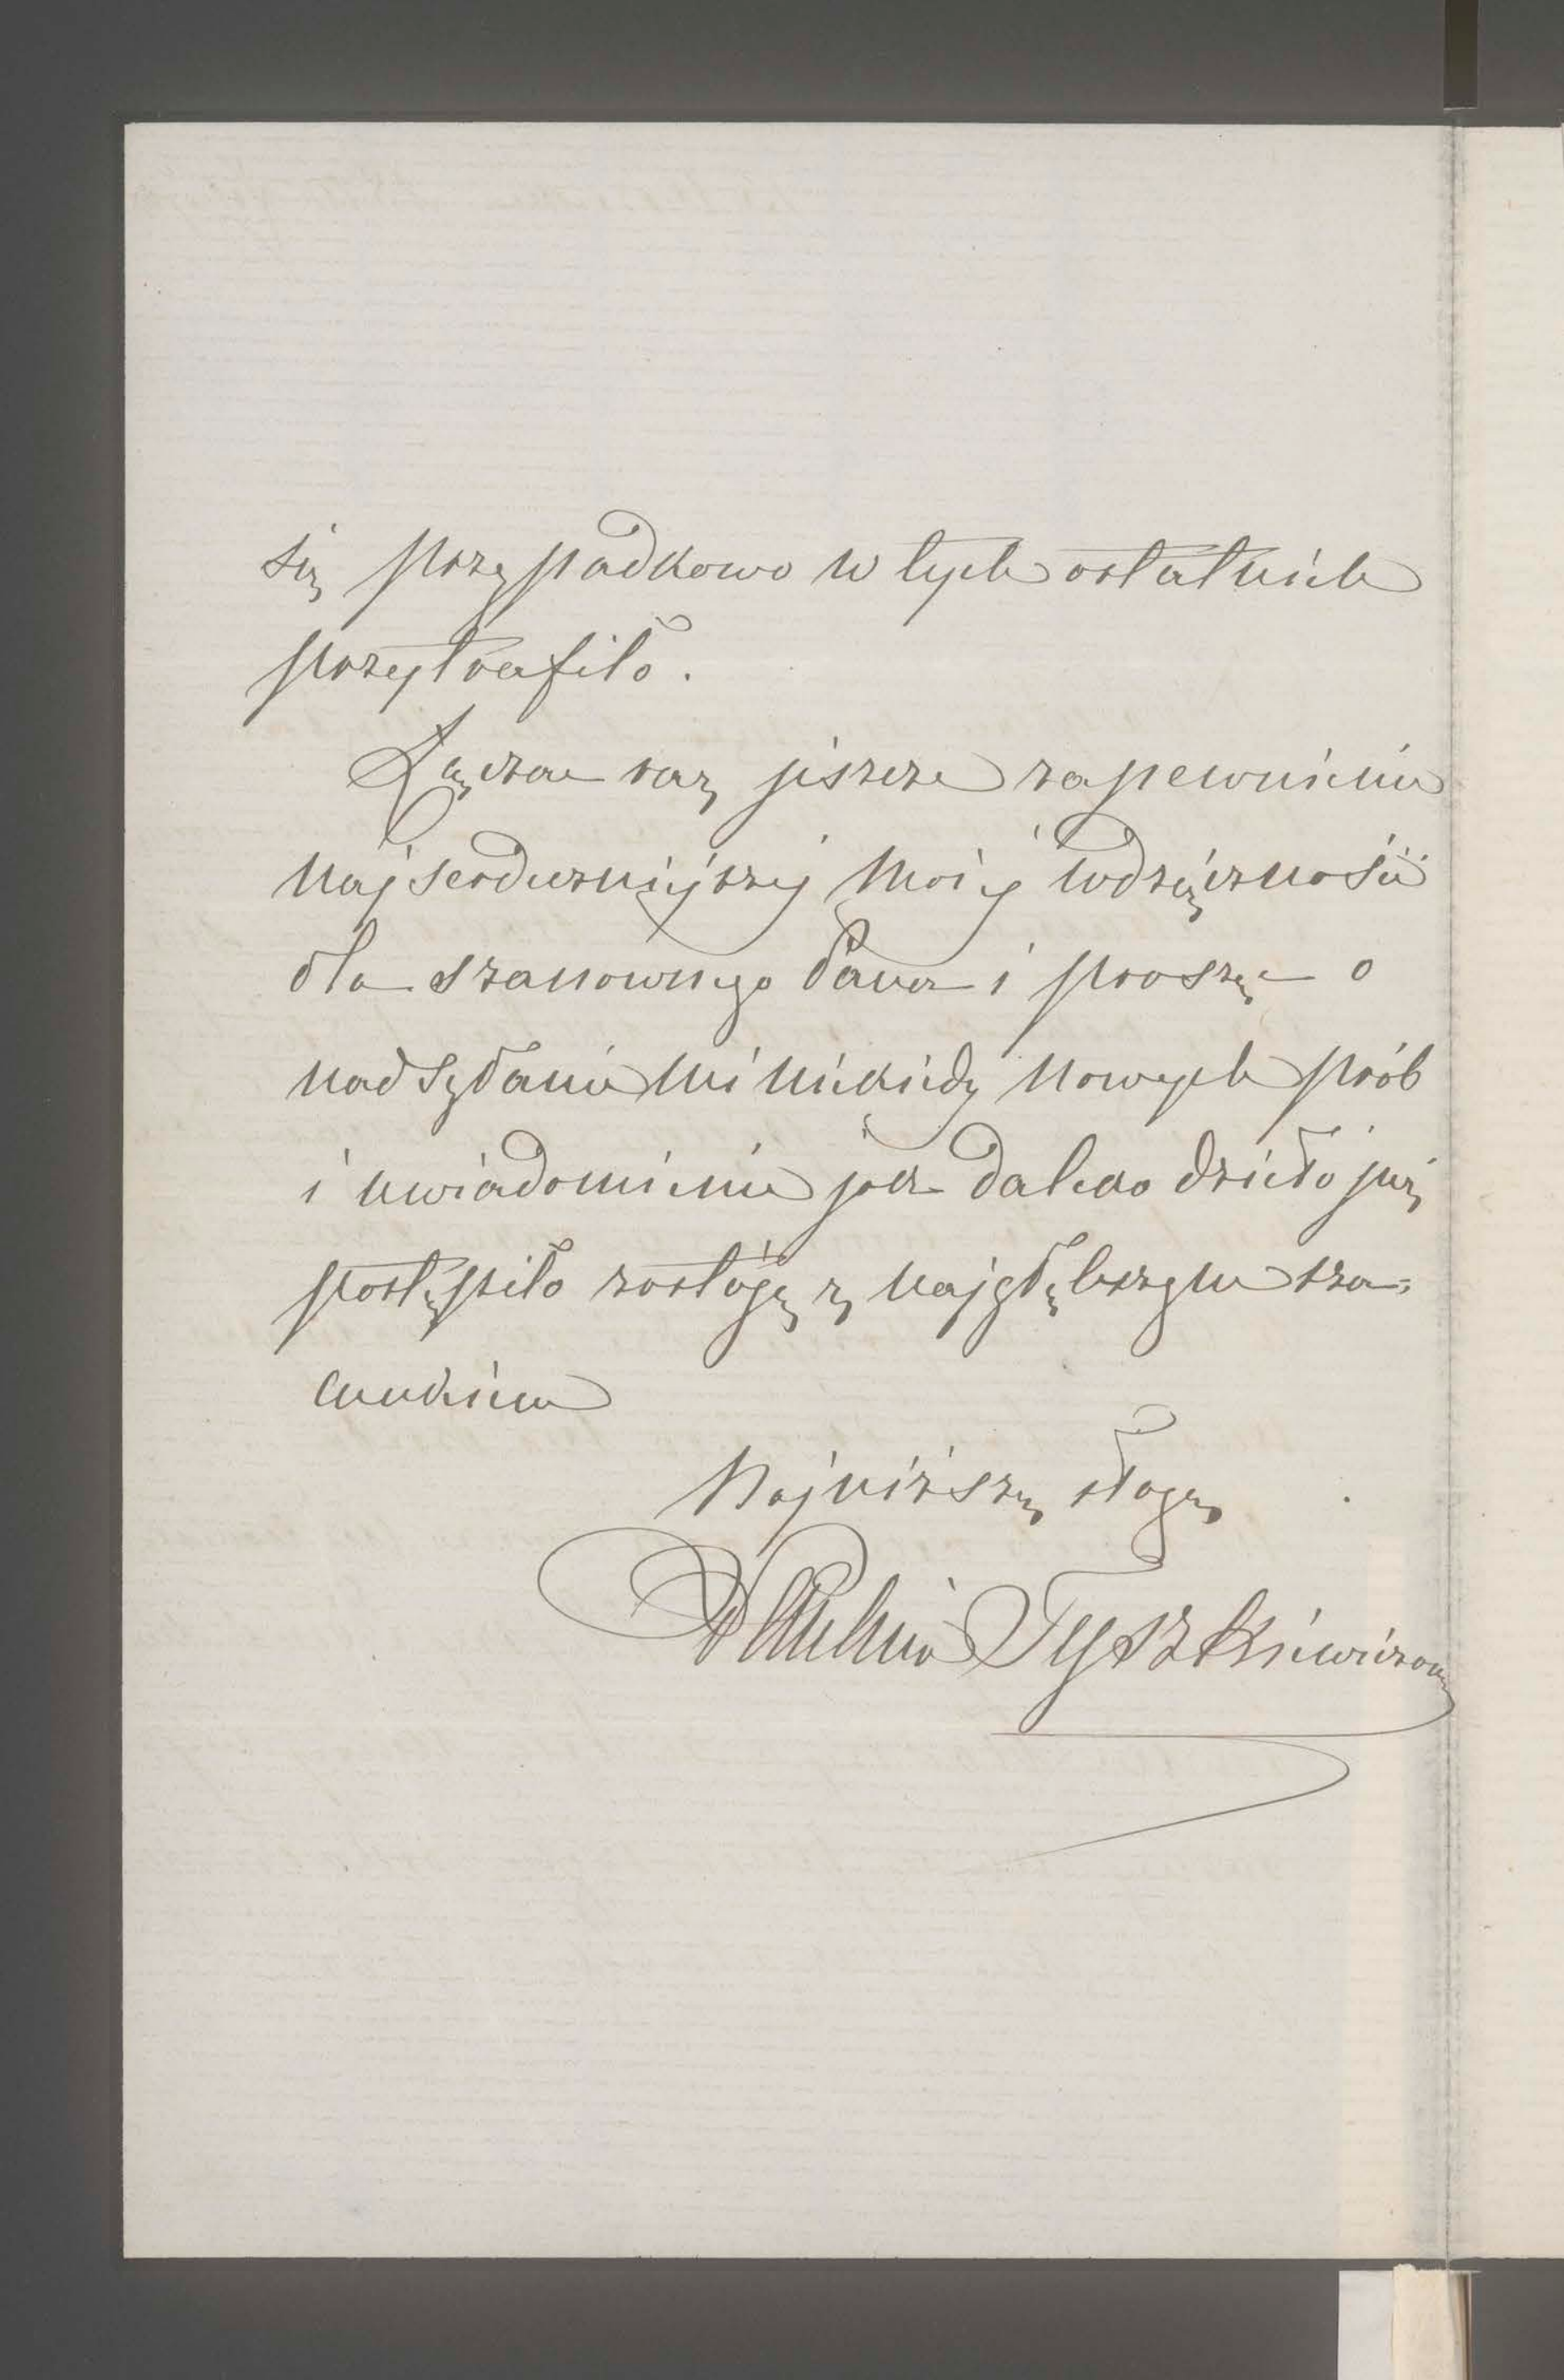 się przypadkowo w tych ostatnich
przytrafiło.
Łączac raz jeszcze zapewnienie
najserdeczniejszej mojej wdzięczności
dla szanownego Pana i proszęc o
nadsyłanie mi niekiedy nowych prób
i uwiadomienie jak daleko dzieło już
postąpiło zostaję z najgłębszym sza=
cunkiem
Najniższą sługą
Tyszkiewiczowa